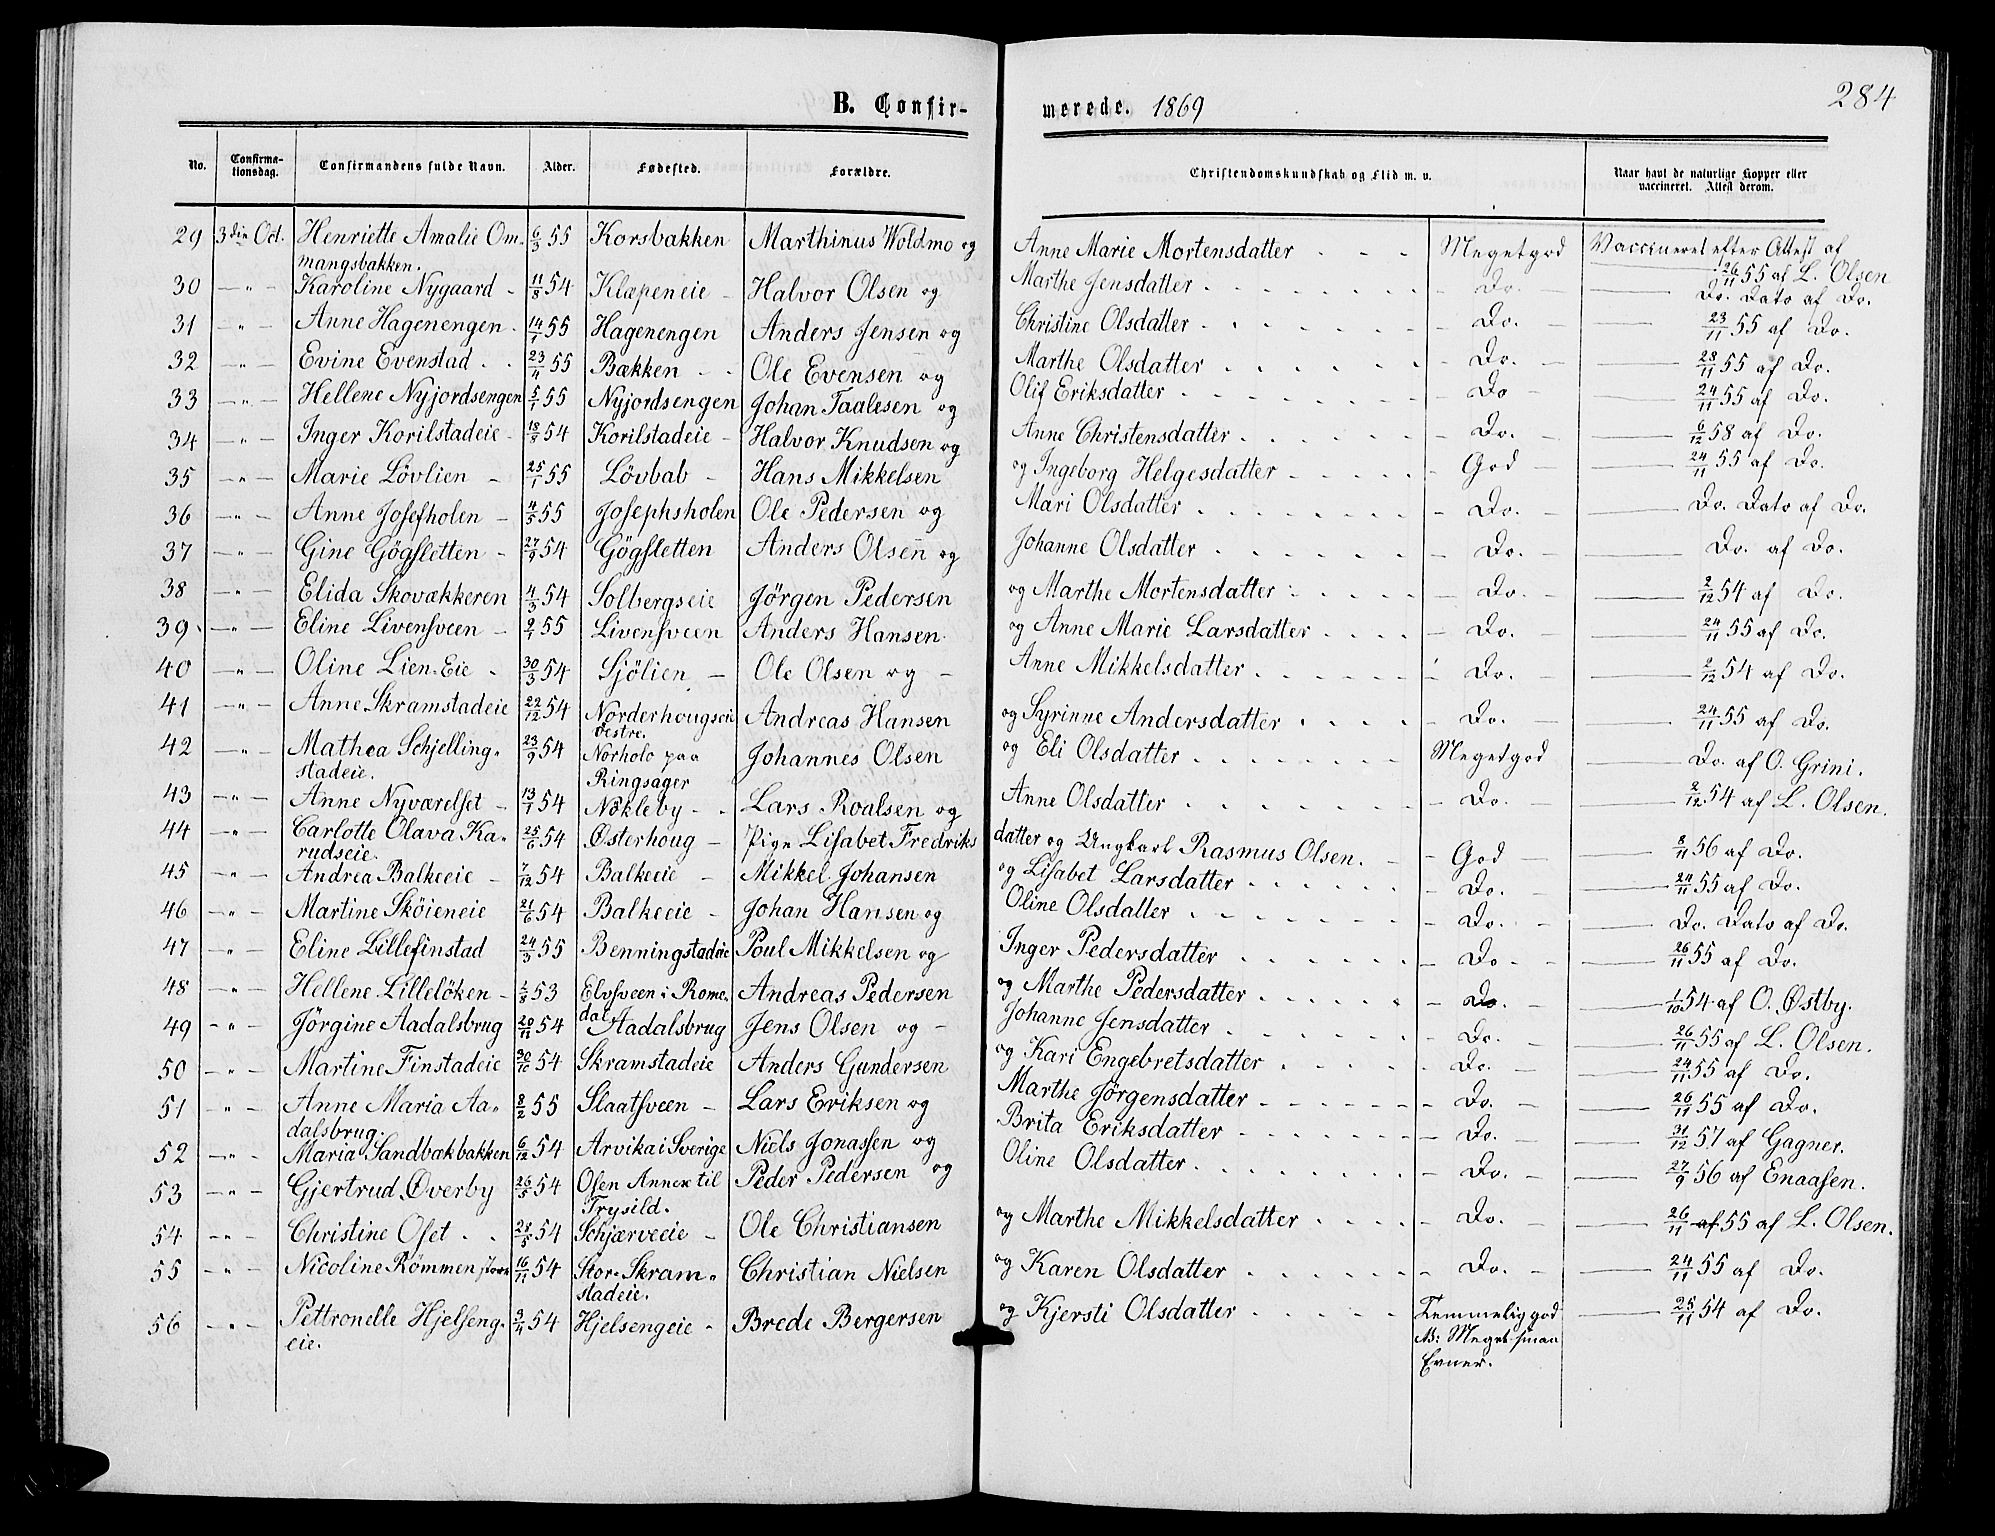 284
B. Confirmerede. 1869
No. Confirmationsdag. Confirmandens fulde Navn. Alder. Fødested. Forældre. Christendomskundskab og Flid m. v. Naar havt de naturlige Kopper eller vaccineret. Attest derom.
29 3die Oct. Henriette Amalie Om- 6/3 55 Korsbakken Marthinus Woldmo og Anne Marie Mortensdatter - - - Megetgod Vaccineret efter Attest af
mangsbakken. 26/11 55 af L. Olsen
30 — " — Karoline Nygaard - 11/8 54 Klæpeneie - Halvor Olsen og Marthe Jensdatter - Do. — Do. Dato af Do.
31 — " — Anne Hagenengen - 14/1 55 Hagenengen Anders Jensen og Christine Olsdatter - Do. — 23/11 55 af Do.
32 — " — Evine Evenstad - - 23/4 55 Bækken - - Ole Evensen og Marthe Olsdatter - Do. — 28/11 55 af Do.
33 — " — Hellene Nyjordsengen 5/1 55 Nyjordsengen Johan Taalesen og Olif Eriksdatter - Do — 24/11 55 af Do.
34 — " — Inger Korilstadeie - 18/8 54 Korilstadeie - Halvor Knudsen og Anne Christensdatter - Do. — 6/12 58 af Do.
35 — " — Marie Lövlien - 25/1 55 Lövbab - Hans Mikkelsen og Ingeborg Helgesdatter - God — 24/11 55 af Do.
36 — " — Anne Josefholen - 4/5 55 Josephsholen Ole Pedersen og Mari Olsdatter - Do. — Do. Dato af Do.
37 — " — Gine Gögsletten - 27/9 54 Gögsletten Anders Olsen og Johanne Olsdatter - Do. — Do. af Do.
38 — " — Elida Skovækkeren 4/3 54 Solbergseie Jörgen Pedersen og Marthe Mortensdatter - Do. — 2/12 54 af Do.
39. — " — Eline Livensveen - 2/1 55 Livensveen Anders Hansen og Anne Marie Larsdatter - Do. — 24/11 55 af Do.
40 — " — Oline Lien-Eie - 30/3 54 Sjölien - Ole Olsen og - Anne Mikkelsdatter - Do. — 2/12 54 af Do.
41 — " — Anne Skramstadeie 22/12 54 Norderhougseie Andreas Hansen og Syrinne Andersdatter - Do. — 24/11 55 af Do.
östre.
42 — " — Mathea Schjelling- 23/9 54 Norholo paa Johannes Olsen og Eli Olsdatter - Megetgod — Do. af O. Grini.
stadeie. Ringsager
43 — " — Anne Nyværelset - 13/1 54 Nökleby - - Lars Roalsen og Anne Olsdatter - Do. — 2/12 54 af L. Olsen.
44 — " — Carlotte Olava Ka- 25/6 54 Østerhoug - Pige Lisabet Fredriks datter og Ungkarl Rasmus Olsen. - God — 8/11 56 af Do.
rudseie.
45 — " — Andrea Balkeeie - 7/12 54 Balkeeie - Mikkel Johansen og Lisabet Larsdatter - Do. — 24/11 55 af Do.
46 — " — Martine Sköieneie 21/6 54 Balkeeie - Johan Hansen og Oline Olsdatter - Do. — Do. Dato af Do.
47 — " — Eline Lillefinstad 24/3 55 Benningstadeie Poul Mikkelsen og Inger Pedersdatter - Do — 26/11 55 af Do.
48 — " — Hellene Lillelöken - 2/8 53 Elvsveen i Rome- Andreas Pedersen og Marthe Pedersdatter - Do. — 1/10 54 af O. Østby.
dal
49 — " — Jörgine Aadalsbrug 20/11 54 Aadalsbrug Jens Olsen og - Johanne Jensdatter - Do. — 26/11 55 af L. Olsen.
50 — " — Martine Finstadeie 30/10 54 Skramstadeie Anders Gundersen og Kari Engebretsdatter - Do. — 24/11 55 af Do.
51 — " — Anne Maria Aa- 8/2 55 Slaatsveen - Lars Eriksen og Marthe Jörgensdatter - Do. — 26/11 55 af Do.
dalsbrug.
52 — " — Maria Sandbækbakken 6/12 54 Arvika i Sverige Niels Jonassen og Brita Eriksdatter - Do. — 31/12 57 af Gagner.
53 — " — Gjertrud Øverby 26/5 54 Osen Annex til Peder Pedersen og Oline Olsdatter - Do. — 27/9 56 af Enaasen.
Trysild.
54 — " — Christine Oset - - 28/5 54 Schjærveeie - Ole Christiansen og Marthe Mikkelsdatter - Do. — 26/11 af 55 af L. Olsen.
55 — " — Nicoline Römmen store 16/11 54 Stor-Skram- Christian Nielsen og Karen Olsdatter - Do. — 24/11 55 af Do.
stadeie.
56 — " — Pettronelle Hjelseng- 9/4 54 Hjelsengeie - Brede Bergersen og Kjersti Olsdatter - Temmeliggod — 25/11 54 af Do.
eie. NB: Meget smaa
Evner.